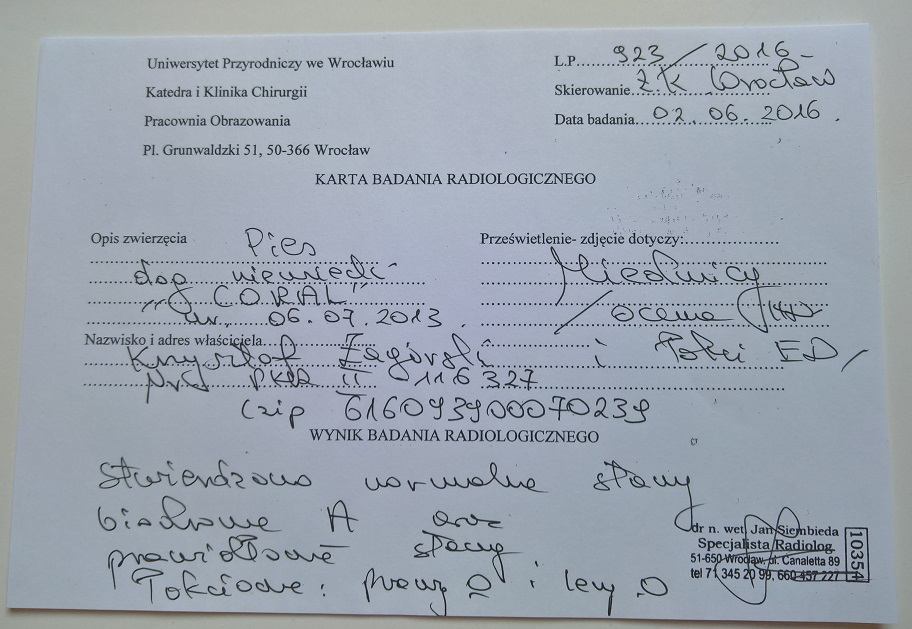 Uniwersytet Przyrodniczy we Wrocławiu
Katedra i Klinika Chirurgii
Pracownia Obrazowania
Pl. Grunwaldzki 51, 50-366 Wrocław
L.P. 923/2016
Skierowanie ŻK Wrocław
Data badania 02.06.2016.
KARTA BADANIA RADIOLOGICZNEGO
Opis zwierzęcia Pies
dog niemiecki
"CORAL"
ur. 06.07.2013.
Prześwietlenie- zdjęcie dotyczy:
Miednicy
/ocena HD
i łokci ED/
Nazwisko i adres właściciela
Krzysztof Zagórski
nr PKR II 116327
Czip 616093900070239
WYNIK BADANIA RADIOLOGICZNEGO
Stwierdzono normalne stawy
biodrowe A oraz
prawidłowe stawy
łokciowe: prawy 0 i lewy 0
dr n. wet. Jan Siembieda
Specjalista Radiolog
51-650 Wrocław, ul. Canaletta 89
tel 71 345 20 99, 660 457 227
10354